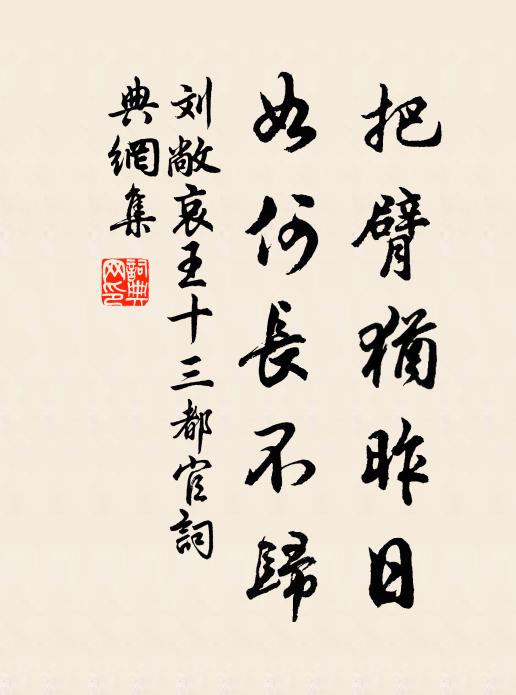 把臂猶昨日
如何長不歸
刘敞哀王十三都官詞
典網集
詞典
网印